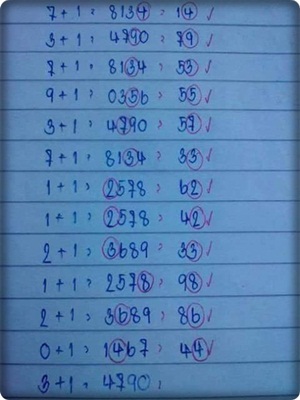 7+1 > 8134 > 14 ✓
3+1 > 4790 > 79 ✓
7+1 > 8134 > 53 ✓
9+1 > 0356 > 55 ✓
3+1 > 4790 > 57 ✓
7+1 > 8134 > 33 ✓
1+1 > 2578 > 62 ✓
1+1 > 2578 > 42 ✓
2+1 > 3689 > 33 ✓
1+1 > 2578 > 98 ✓
2+1 > 3689 > 86 ✓
0+1 > 1467 > 44 ✓
3+1 > 4790 >